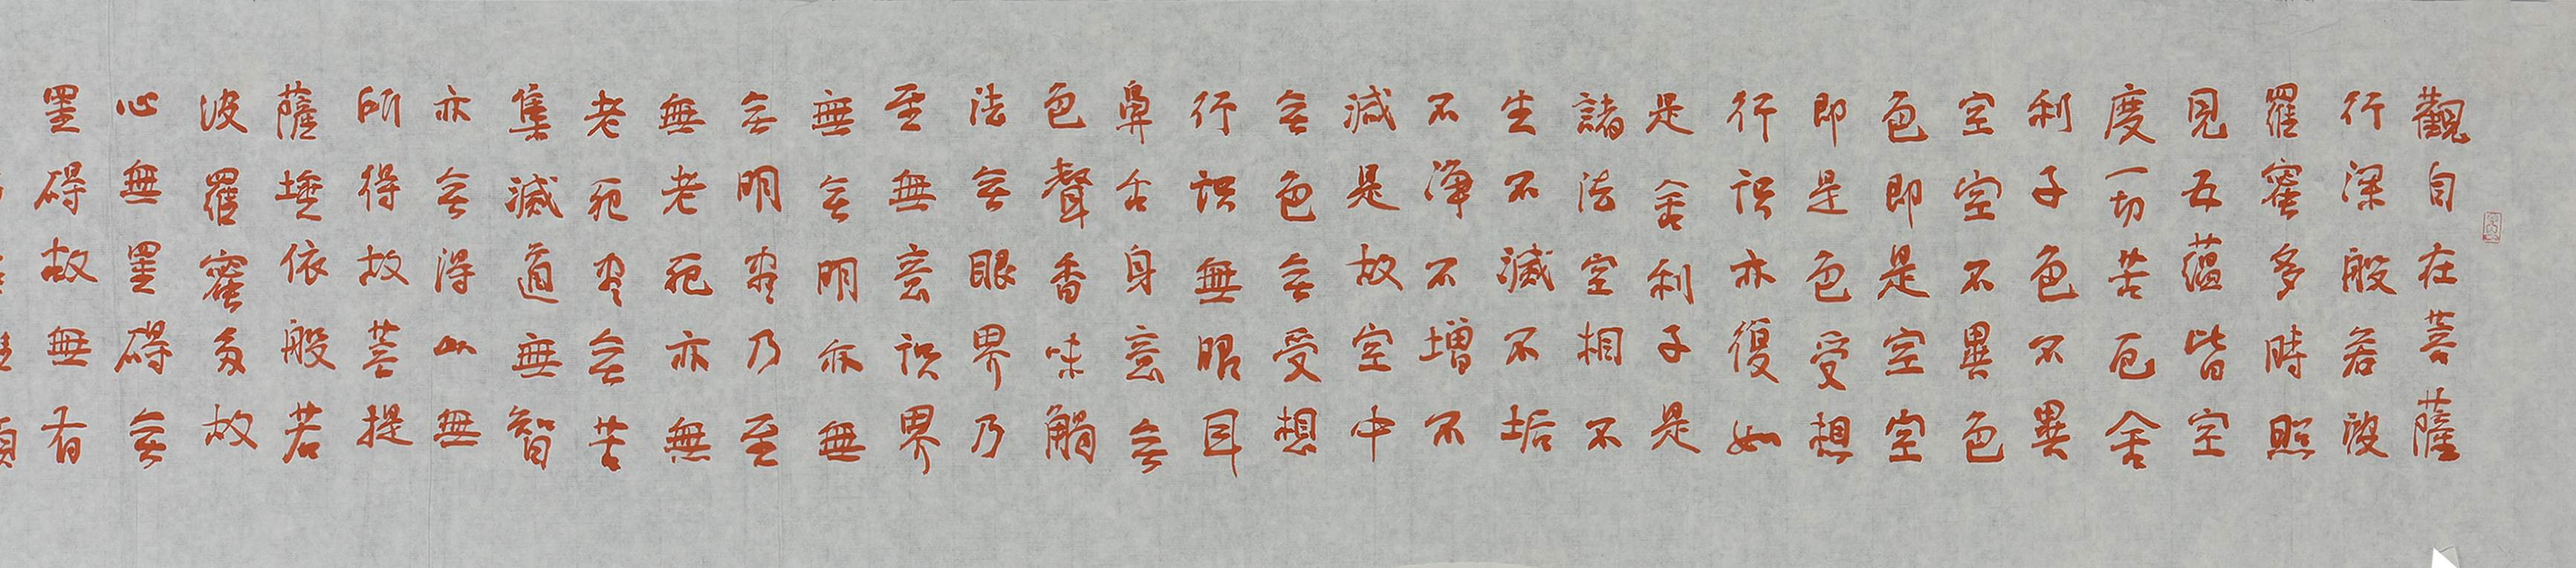 觀自在菩薩
行深般若波
羅蜜多時照
見五蘊皆空
度一切苦厄舍
利子色不異
空空不異色
色即是空空
即是色受想
行识亦復如
是舍利子是
諸法空相不
生不滅不垢
不淨不增不
減是故空中
無色無受想
行识無眼耳
鼻舌身意無
色聲香味觸
法無眼界乃
至無意识界
無無明亦無
無明盡乃至
無老死亦無
老死盡無苦
集滅道無智
亦無得以無
所得故菩提
薩埵依般若
波羅蜜多故
心無罣碍無
罣碍故無有